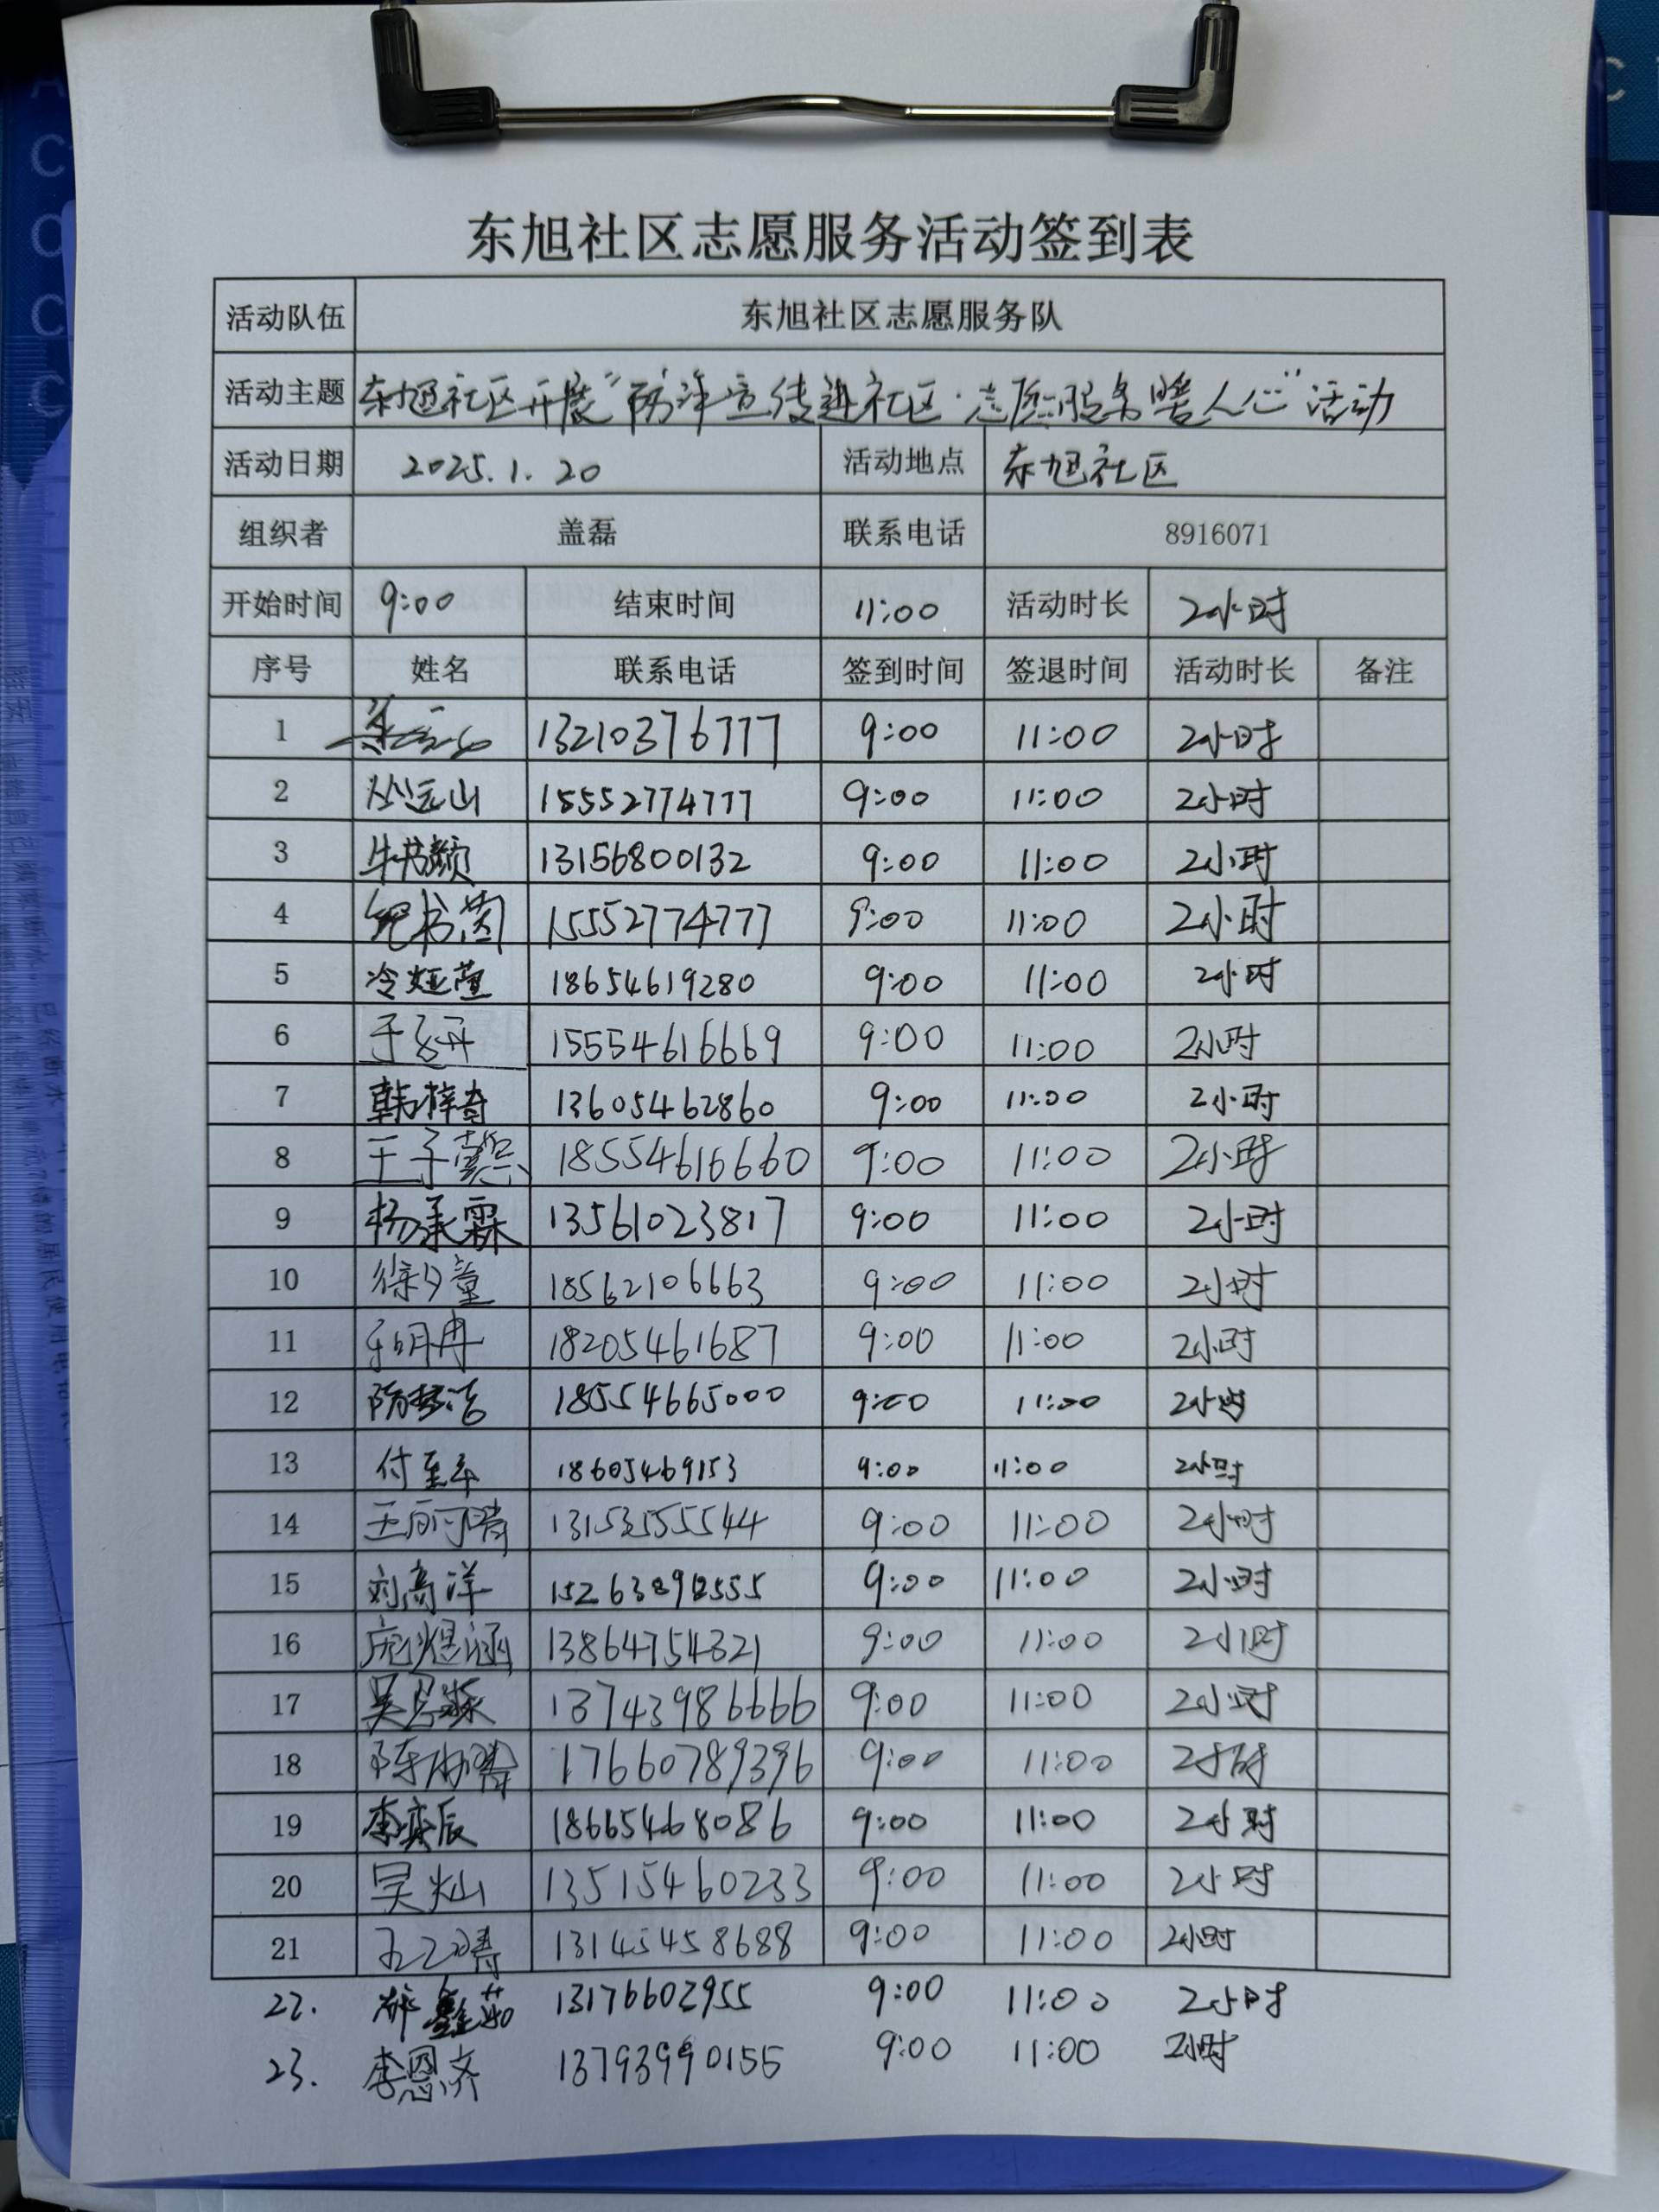 东旭社区志愿服务活动签到表
活动队伍 东旭社区志愿服务队
活动主题 东旭社区开展“防诈宣传进社区·志愿服务暖人心”活动
活动日期 2025.1.20 活动地点 东旭社区
组织者 盖磊 联系电话 8916071
开始时间 9:00 结束时间 11:00 活动时长 2小时
序号 姓名 联系电话 签到时间 签退时间 活动时长 备注
1 13210376777 9:00 11:00 2小时
2 丛远山 15552774777 9:00 11:00 2小时
3 牛书颜 13156800132 9:00 11:00 2小时
4 纪书茵 15552774777 9:00 11:00 2小时
5 冷烜萱 18654619280 9:00 11:00 2小时
6 15554616669 9:00 11:00 2小时
7 韩梓奇 13605462860 9:00 11:00 2小时
8 王子懿 18554616660 9:00 11:00 2小时
9 杨承霖 13561023817 9:00 11:00 2小时
10 徐夕童 18562106663 9:00 11:00 2小时
11 18205461687 9:00 11:00 2小时
12 18554665000 9:00 11:00 2小时
13 18605469153 9:00 11:00 2小时
14 13153555544 9:00 11:00 2小时
15 刘高洋 9:00 11:00 2小时
16 庞煜涵 13864754321 9:00 11:00 2小时
17 13743986666 9:00 11:00 2小时
18 17660789396 9:00 11:00 2小时
19 李奕辰 18665468086 9:00 11:00 2小时
20 吴灿 13515460233 9:00 11:00 2小时
21 13145458688 9:00 11:00 2小时
22. 13176602955 9:00 11:00 2小时
23. 李恩济 13793990155 9:00 11:00 2小时